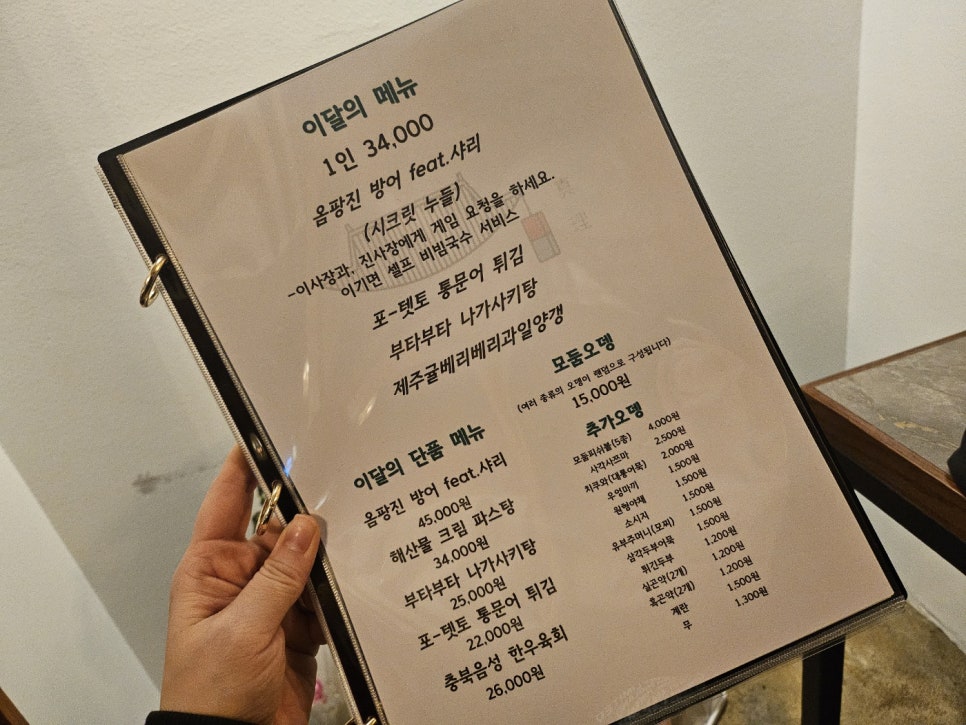 이달의 메뉴
1인 34,000
옴팡진 방어 feat.샤리
(시크릿 누들)
-이사장과, 진사장에게 게임 요청을 하세요.
이기면 셀프 비빔국수 서비스
포-텟토 통문어 튀김
부타부타 나가사키탕
제주귤베리베리과일양갱
이달의 단품 메뉴
옴팡진 방어 feat.샤리
45,000원
해산물 크림 파스탕
34,000원
부타부타 나가사키탕
25,000원
포-텟토 통문어 튀김
22,000원
충북음성 한우육회
26,000원
모둠오뎅
(여러 종류의 오뎅이 랜덤으로 구성됩니다)
15,000원
추가오뎅
모둠피쉬볼(5종) 4,000원
사각사쯔마 2,500원
치쿠와(대롱어묵) 2,000원
우엉마끼 1,500원
원형야채 1,500원
소시지 1,500원
유부주머니(모찌) 1,500원
삼각두부어묵 1,500원
튀긴두부 1,200원
실곤약(2개) 1,200원
흑곤약(2개) 1,200원
계란 1,500원
무 1,300원